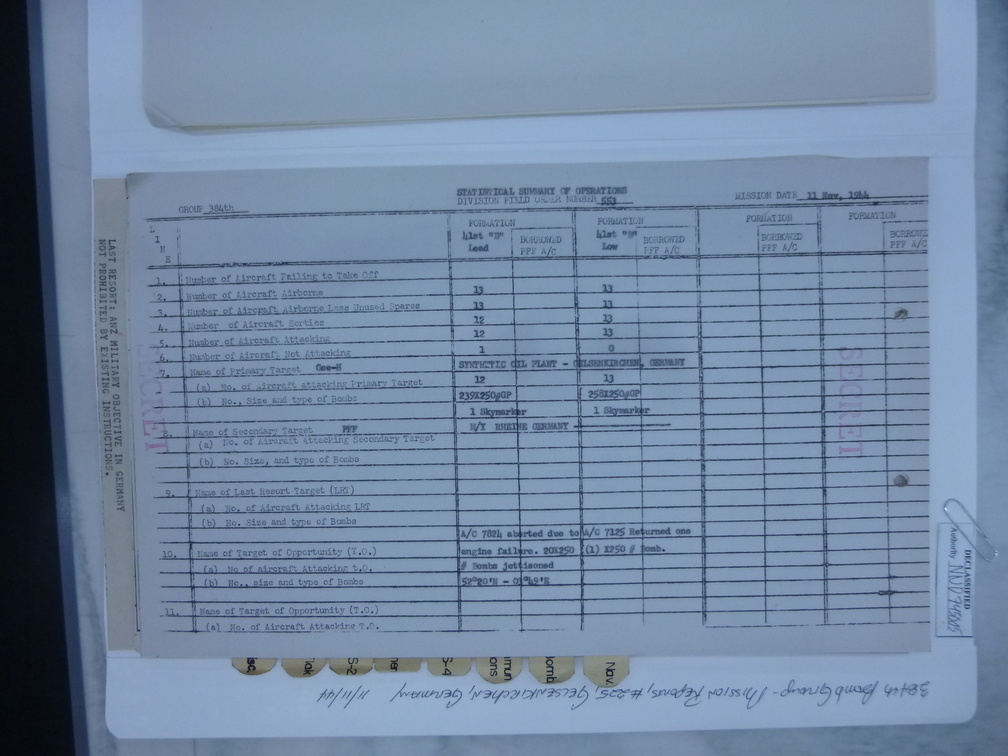 STATISTICAL SUMMARY OF OPERATIONS
GROUP 384th DIVISION FIELD ORDER NUMBER 553 MISSION DATE 11 Nov. 1944
L I N E
FORMATION FORMATION FORMATION FORMATION
41st "B" Lead BORROWED PFF A/C 41st "B" Low BORROWED PFF A/C BORROWED PFF A/C BORRO PFF A/C
1. Number of Aircraft Failing to Take Off
2. Number of Aircraft Airborne 13 13
3. Number of Aircraft Airborne Less Unused Spares 13 13
4. Number of Aircraft Sorties 12 13
5. Number of Aircraft Attacking 12 13
6. Number of Aircraft Not Attacking 1 0
7. Name of Primary Target Gee-H SYNTHETIC OIL PLANT - GELSENKIRCHEN, GERMANY
(a) No. of Aircraft attacking Primary Target 12 13
(b) No., Size and type of Bombs 239X250#GP 258X250#GP
1 Skymarker 1 Skymarker
8. Name of Secondary Target PFF M/Y RHEINE GERMANY
(a) No. of Aircraft Attacking Secondary Target
(b) No. Size, and type of Bombs
9. Name of Last Resort Target (LRT)
(a) No. of Aircraft Attacking LRT
(b) No. Size and type of Bombs
A/C 7824 aborted due to A/C 7125 Returned one
10. Name of Target of Opportunity (T.O.) engine failure. 20X250 (1) X250 # Bomb.
(a) No of aircraft Attacking t.O. # Bombs jettisoned
(b) No., size and type of Bombs
11. Name of Target of Opportunity (T.O.)
(a) No. of Aircraft Attacking T.O.
SECRET
SECRET
LAST RESORT: ANY MILITARY OBJECTIVE IN GERMANY
NOT PROHIBITED BY EXISTING INSTRUCTIONS.
DECLASSIFIED
Authority
S-2
S-4
Bomb
Nav.
384th Bomb Group - Mission Reports, #225, Gelsenkirchen, Germany 11/11/44